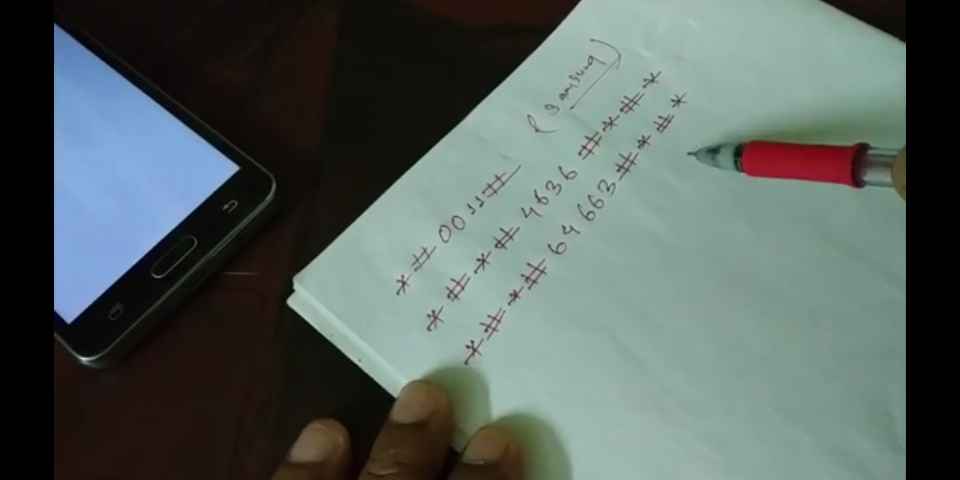 *#0011# (Samsung)
*#*#4636#*#*
*#*#64663#*#*